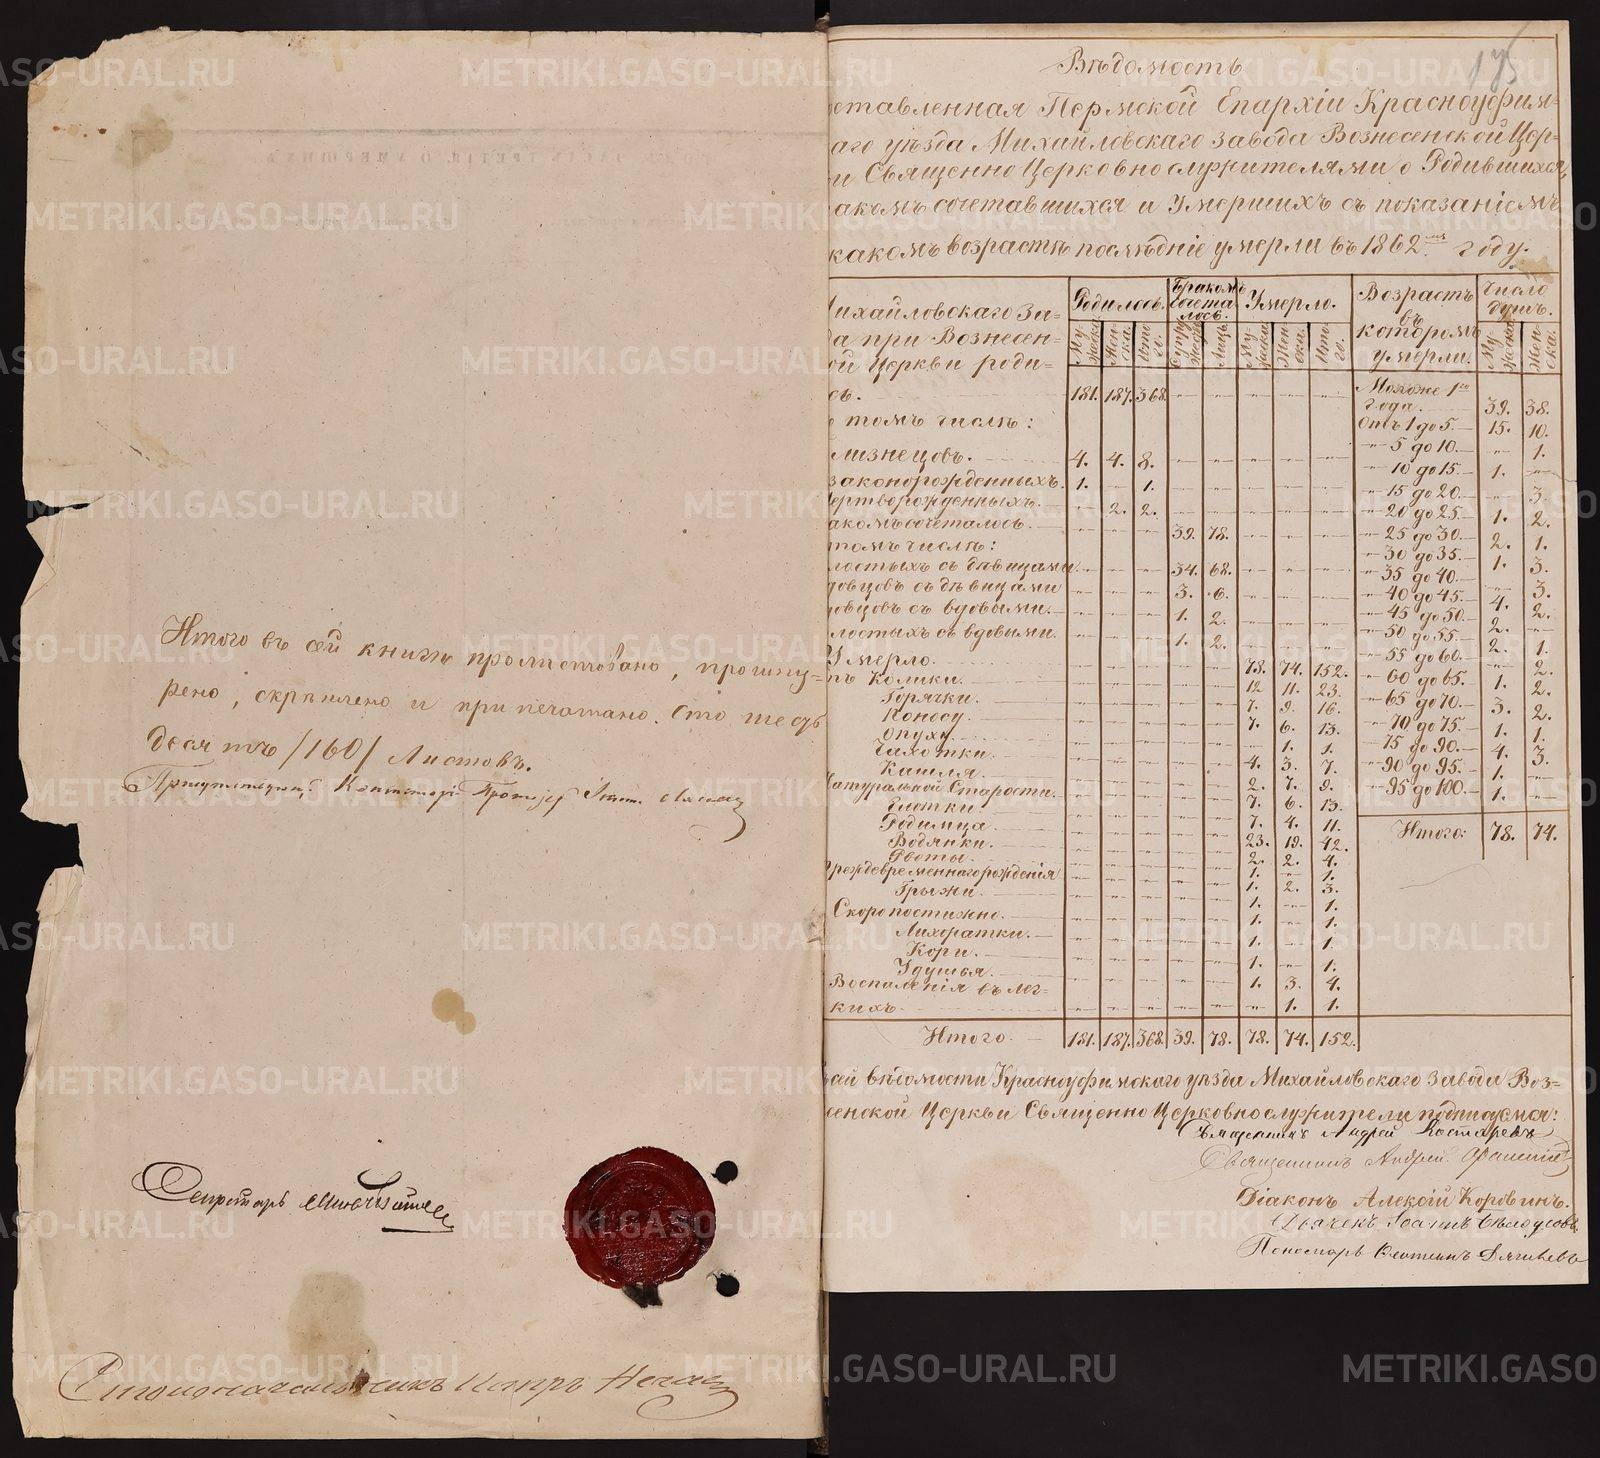 Итого въ сей книгѣ пролистовано, прошну=
рено, скрѣплено и припечатано. Сто шесть
десятъ /160/ Листовъ.
Присутствующій Протоіерей
Секретарь
Столоначальникъ
175
Вѣдомость
оставленная Пермской Епархіи Красноуфим=
аго уѣзда Михайловскаго Завода Вознесенской Цер=
и Священно Церковнослужителями о Родившихся,
акомъ сочетавшихся и Умершихъ съ показаніемъ
какомъ возрастѣ послѣдніе умерли въ 1862мъ году.
ихайловскаго За=
да при Вознесен=
ой Церкви роди=
сь. 181. 187. 368. „ „ „ „ „
Родилось. Бракомъ сочета лось. Умерло. Возрастъ въ которомъ умерли. Число душъ.
Му жеска. Жен ска. Ито го. Супру жествъ Лицъ Му жеска Жен ска. Ито го. Му жеска Жен ска.
томъ числѣ:
лизнецовъ. 4. 4. 8.
законорожденныхъ. 1. „ 1.
ертворожденныхъ. „ 2. 2.
акомъ сочеталось. 39. 78.
томъ числѣ:
лостыхъ съ дѣвицами 34. 68.
довцовъ съ дѣвицами 3. 6.
довцовъ съ вдовыми. 1. 2.
лостыхъ съ вдовыми. 1. 2.
Умерло. 78. 74. 152.
тъ Колики. 12 11. 23.
Горячки. 7. 9. 16.
Поносу. 7. 6. 13.
Опухи. „ 1. 1.
Чахотки. 4. 3. 7.
Кашля. 2. 7. 9.
Натуральной Старости. 7. 6. 13.
Глотки 7. 4. 11.
Родимца. 23. 19. 42.
Водянки. 2. 2. 4.
Рвоты. 1. „ 1.
Преждевременнаго рожденія 1. 2. 3.
Грыжи. 1. „ 1.
Скоропостижно. 1. „ 1.
Лихоратки. 1. „ 1.
Кори. 1. „ 1.
Удушья. 1. 3. 4.
Воспаленія въ лег=
кихъ. „ 1. 1.
Итого. 181. 187. 368. 39. 78. 78. 74. 152.
Моложе 1го
года. 39. 38.
Отъ 1 до 5. 15. 10.
„ 5 до 10. „ 1.
„ 10 до 15. 1. „
„ 15 до 20. „ 3.
„ 20 до 25. 1. 2.
„ 25 до 30. 2. 1.
„ 30 до 35. 1. 3.
„ 35 до 40. „ 3.
„ 40 до 45. 4. 2.
„ 45 до 50. 2. „
„ 50 до 55. 2. 1.
„ 55 до 60. „ 2.
„ 60 до 65. 1. 2.
„ 65 до 70. 3. 2.
„ 70 до 75. 1. 1.
„ 75 до 90. 4. 3.
„ 90 до 95. 1. „
„ 95 до 100. 1. „
Итого: 78. 74.
сей вѣдомости Красноуфимскаго уѣзда Михайловскаго Завода Воз=
сенской Церкви Священно Церковнослужители подписуемся:
Священникъ Андрей Костаревъ
Священникъ Андрей
Діаконъ Алексій Коровинъ.
Дьячекъ Іоаннъ Бѣлоусовъ
Пономарь Дягилевъ
METRIKI.GASO-URAL.RU